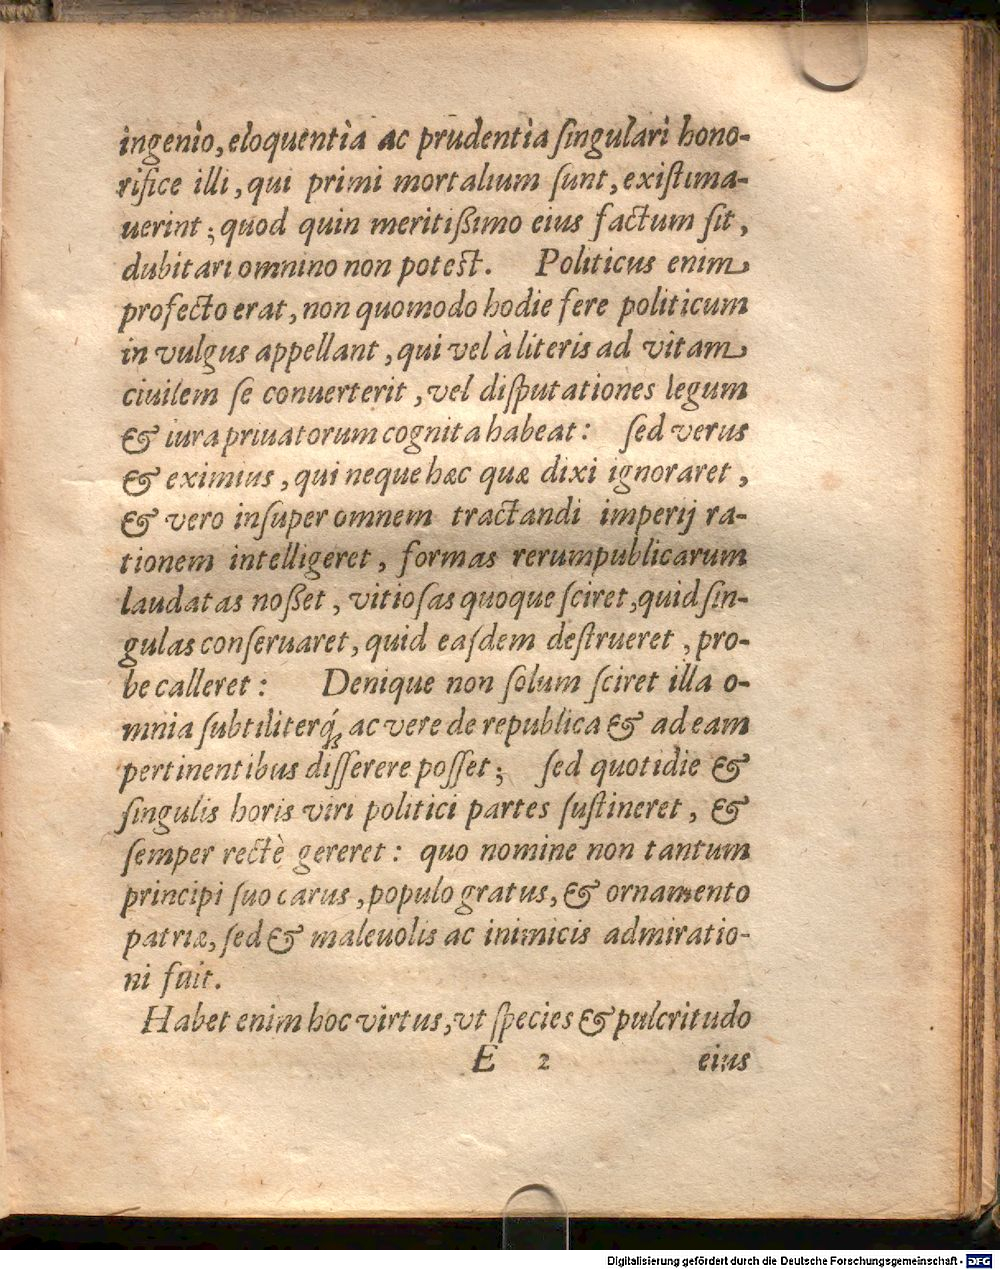 ingenio, eloquentia ac prudentia ſingulari hono-
rifice illi, qui primi mortalium ſunt, exiſtima-
uerint; quod quin meritiſſimo eius factum ſit,
dubitari omnino non poteſt. Politicus enim
profecto erat, non quomodo hodie fere politicum
in vulgus appellant, qui vel à literis ad vitam
ciuilem ſe conuerterit, vel diſputationes legum
& iura priuatorum cognita habeat: ſed verus
& eximius, qui neque hæc quæ dixi ignoraret,
& vero inſuper omnem tractandi imperij ra-
tionem intelligeret, formas rerumpublicarum
laudatas noßet, vitioſas quoque ſciret, quid ſin-
gulas conſeruaret, quid eaſdem deſtrueret, pro-
be calleret: Denique non ſolum ſciret illa o-
mnia ſubtiliterq́; ac vere de republica & ad eam
pertinentibus diſſerere poſſet; ſed quotidie &
ſingulis horis viri politici partes ſuſtineret, &
ſemper rectè gereret: quo nomine non tantum
principi ſuo carus, populo gratus, & ornamento
patriæ, ſed & maleuolis ac inimicis admiratio-
ni fuit.
Habet enim hoc virtus, vt ſpecies & pulcritudo
E 2 eius
Digitalisierung gefördert durch die Deutsche Forschungsgemeinschaft - DFG